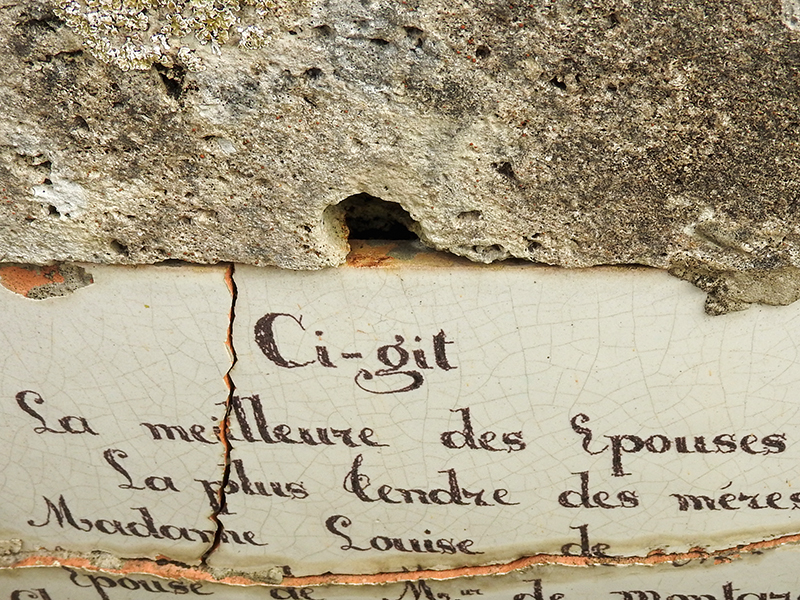 Ci-git
La meilleure des Epouses
La plus tendre des méres
Madame Louise de
Epouse de Mr de montar